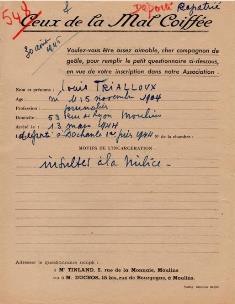 548
Déporté Rapatrié
Ceux de la Mal Coiffée
30 août 1945
Voulez-vous être assez aimable, cher compagnon de
geôle, pour remplir le petit questionnaire ci-dessous,
en vue de votre inscription dans notre Association.
Nom et prénoms : Louis TRIALLOUX
Age : né le 15 novembre 1904
Profession : journalier
Domicile : 53 rue de Lyon Moulins
Arrêté le : 13 mars 1944
déporté à Dachau le 1er juin 1944 N° de la chambre :
MOTIFS DE L'INCARCÉRATION
insultes à la milice -
Adresser le questionnaire rempli :
à Mr TINLAND, 2, rue de la Monnaie, Moulins
ou à M. DUCROS, 15 bis, rue de Bourgogne, à Moulins